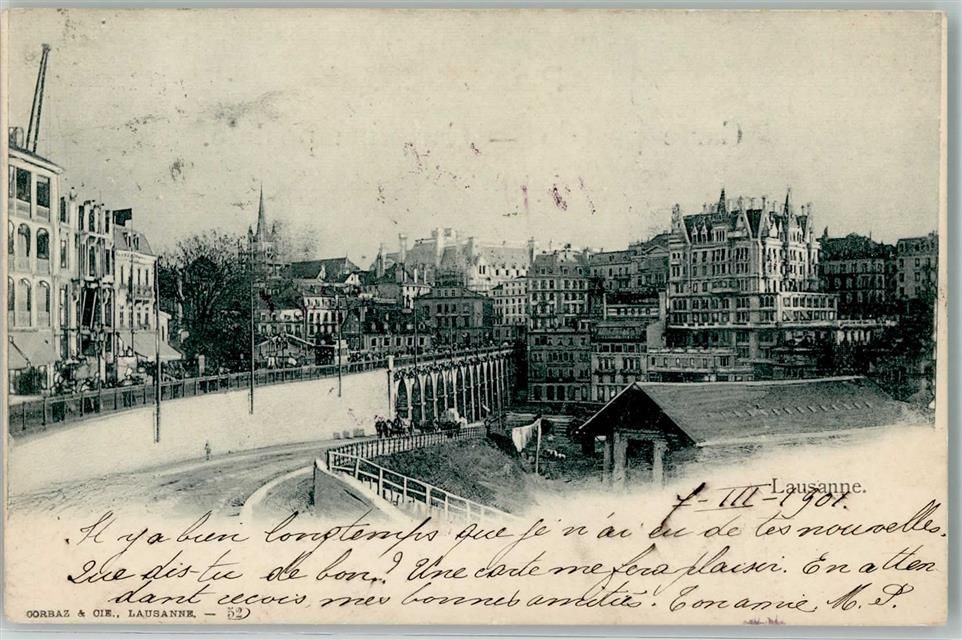 Lausanne.
7-III-1901.
Il y a bien longtemps que je n'ai eu de tes nouvelles.
Que dis-tu de bon? Une carte me fera plaisir. En atten
dant reçois mes bonnes amitiés. Ton amie, M. P.
CORBAZ & CIE., LAUSANNE. — 52